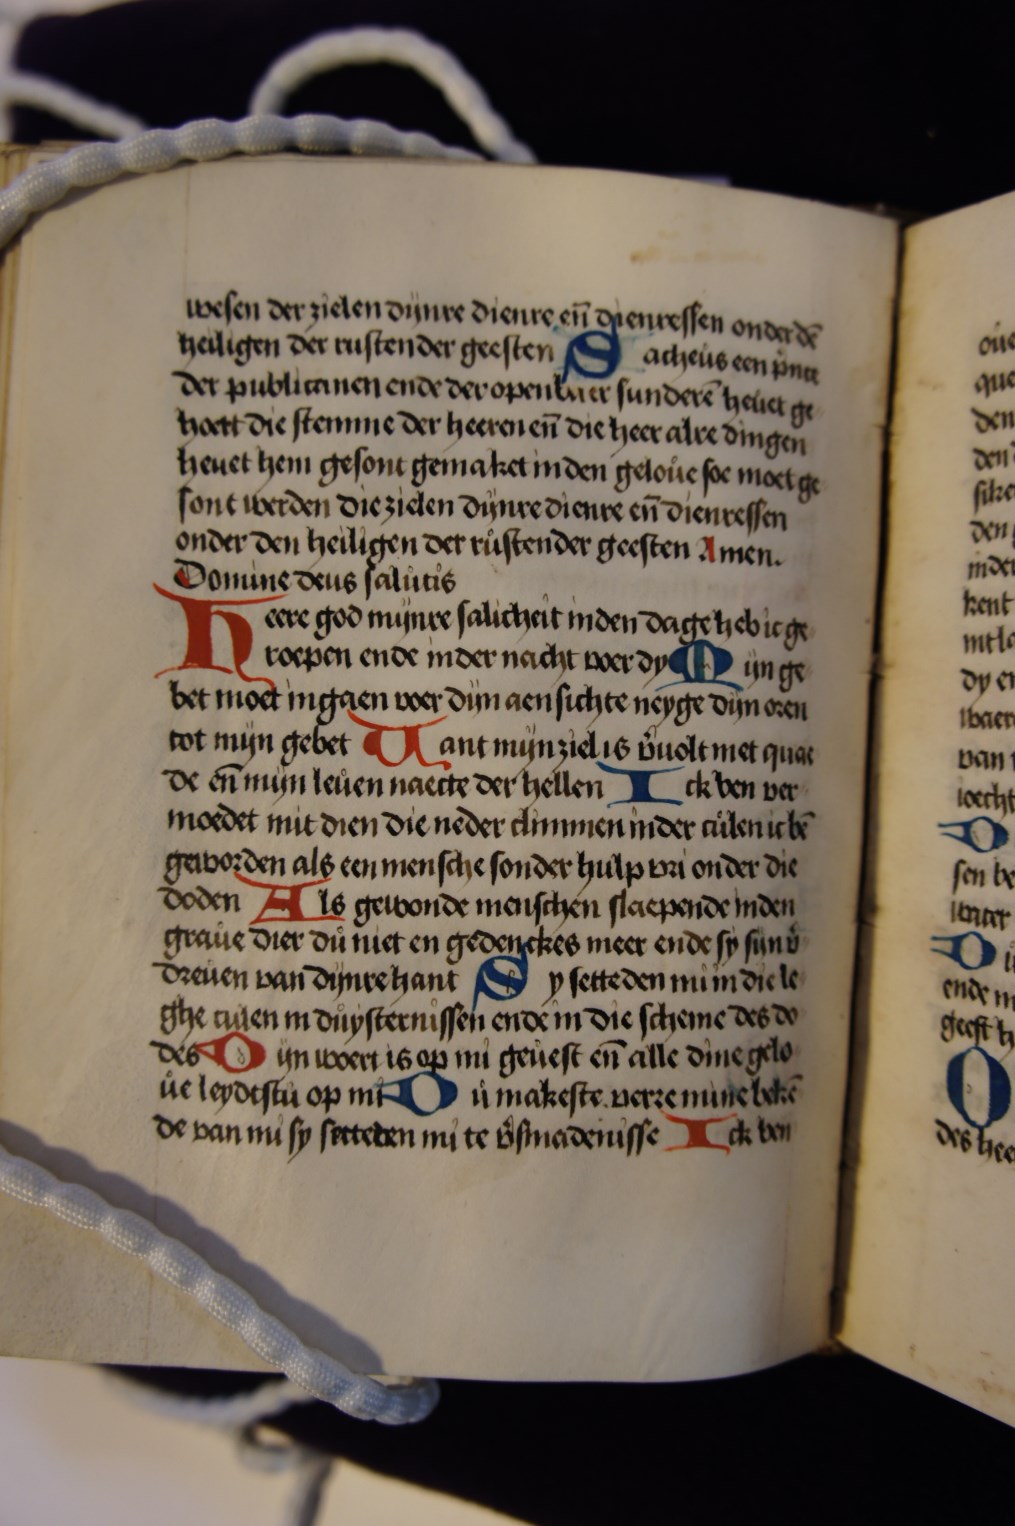 wesen der zielen dijnre dienre en̄ dienressen onder dē
heiligen der rustender geesten Sacheus een
der publicanen ende der openbaer sunderē heuet ge
hoert die stemme der heeren en̄ die heer alre dingen
heuet hem gesont gemaket inden geloue soe moet ge
sont werden die zielen dijnre dienre en̄ dienressen
onder den heiligen der rustender geesten Amen.
Domine deus salutis
Heere god mijnre salicheit inden dage heb ic ge
roepen ende inder nacht voer dy Mijn ge
bet moet ingaen voer dijn aensichte neyge dijn oren
tot mijn gebet Want mijn ziel is v̄uolt met quae
de en̄ mijn leuen naecte der hellen Ick ben ver
moedet mit dien die neder climmen inder culen ic bē
geworden als een mensche sonder hulp vri onder die
doden Als gewonde menschen slaepende inden
graue dier du niet en gedenckes meer ende sy sijn v̄
dreuen van dijnre hant Sy setteden mi in die le
ghe culen in duysternissen ende in die scheme des do
des Dijn woert is op mi geuest en̄ alle dine gelo
ue leydestu op mi Du makeste verre mine bekē
de van mi sy setteden mi te v̄smadenisse Ick ben
oue
que
den
den
sike
den
inder
kent
mtla
dy en
waer
van
wecht
D
sen be
water
D
ende
geest
O
des hee